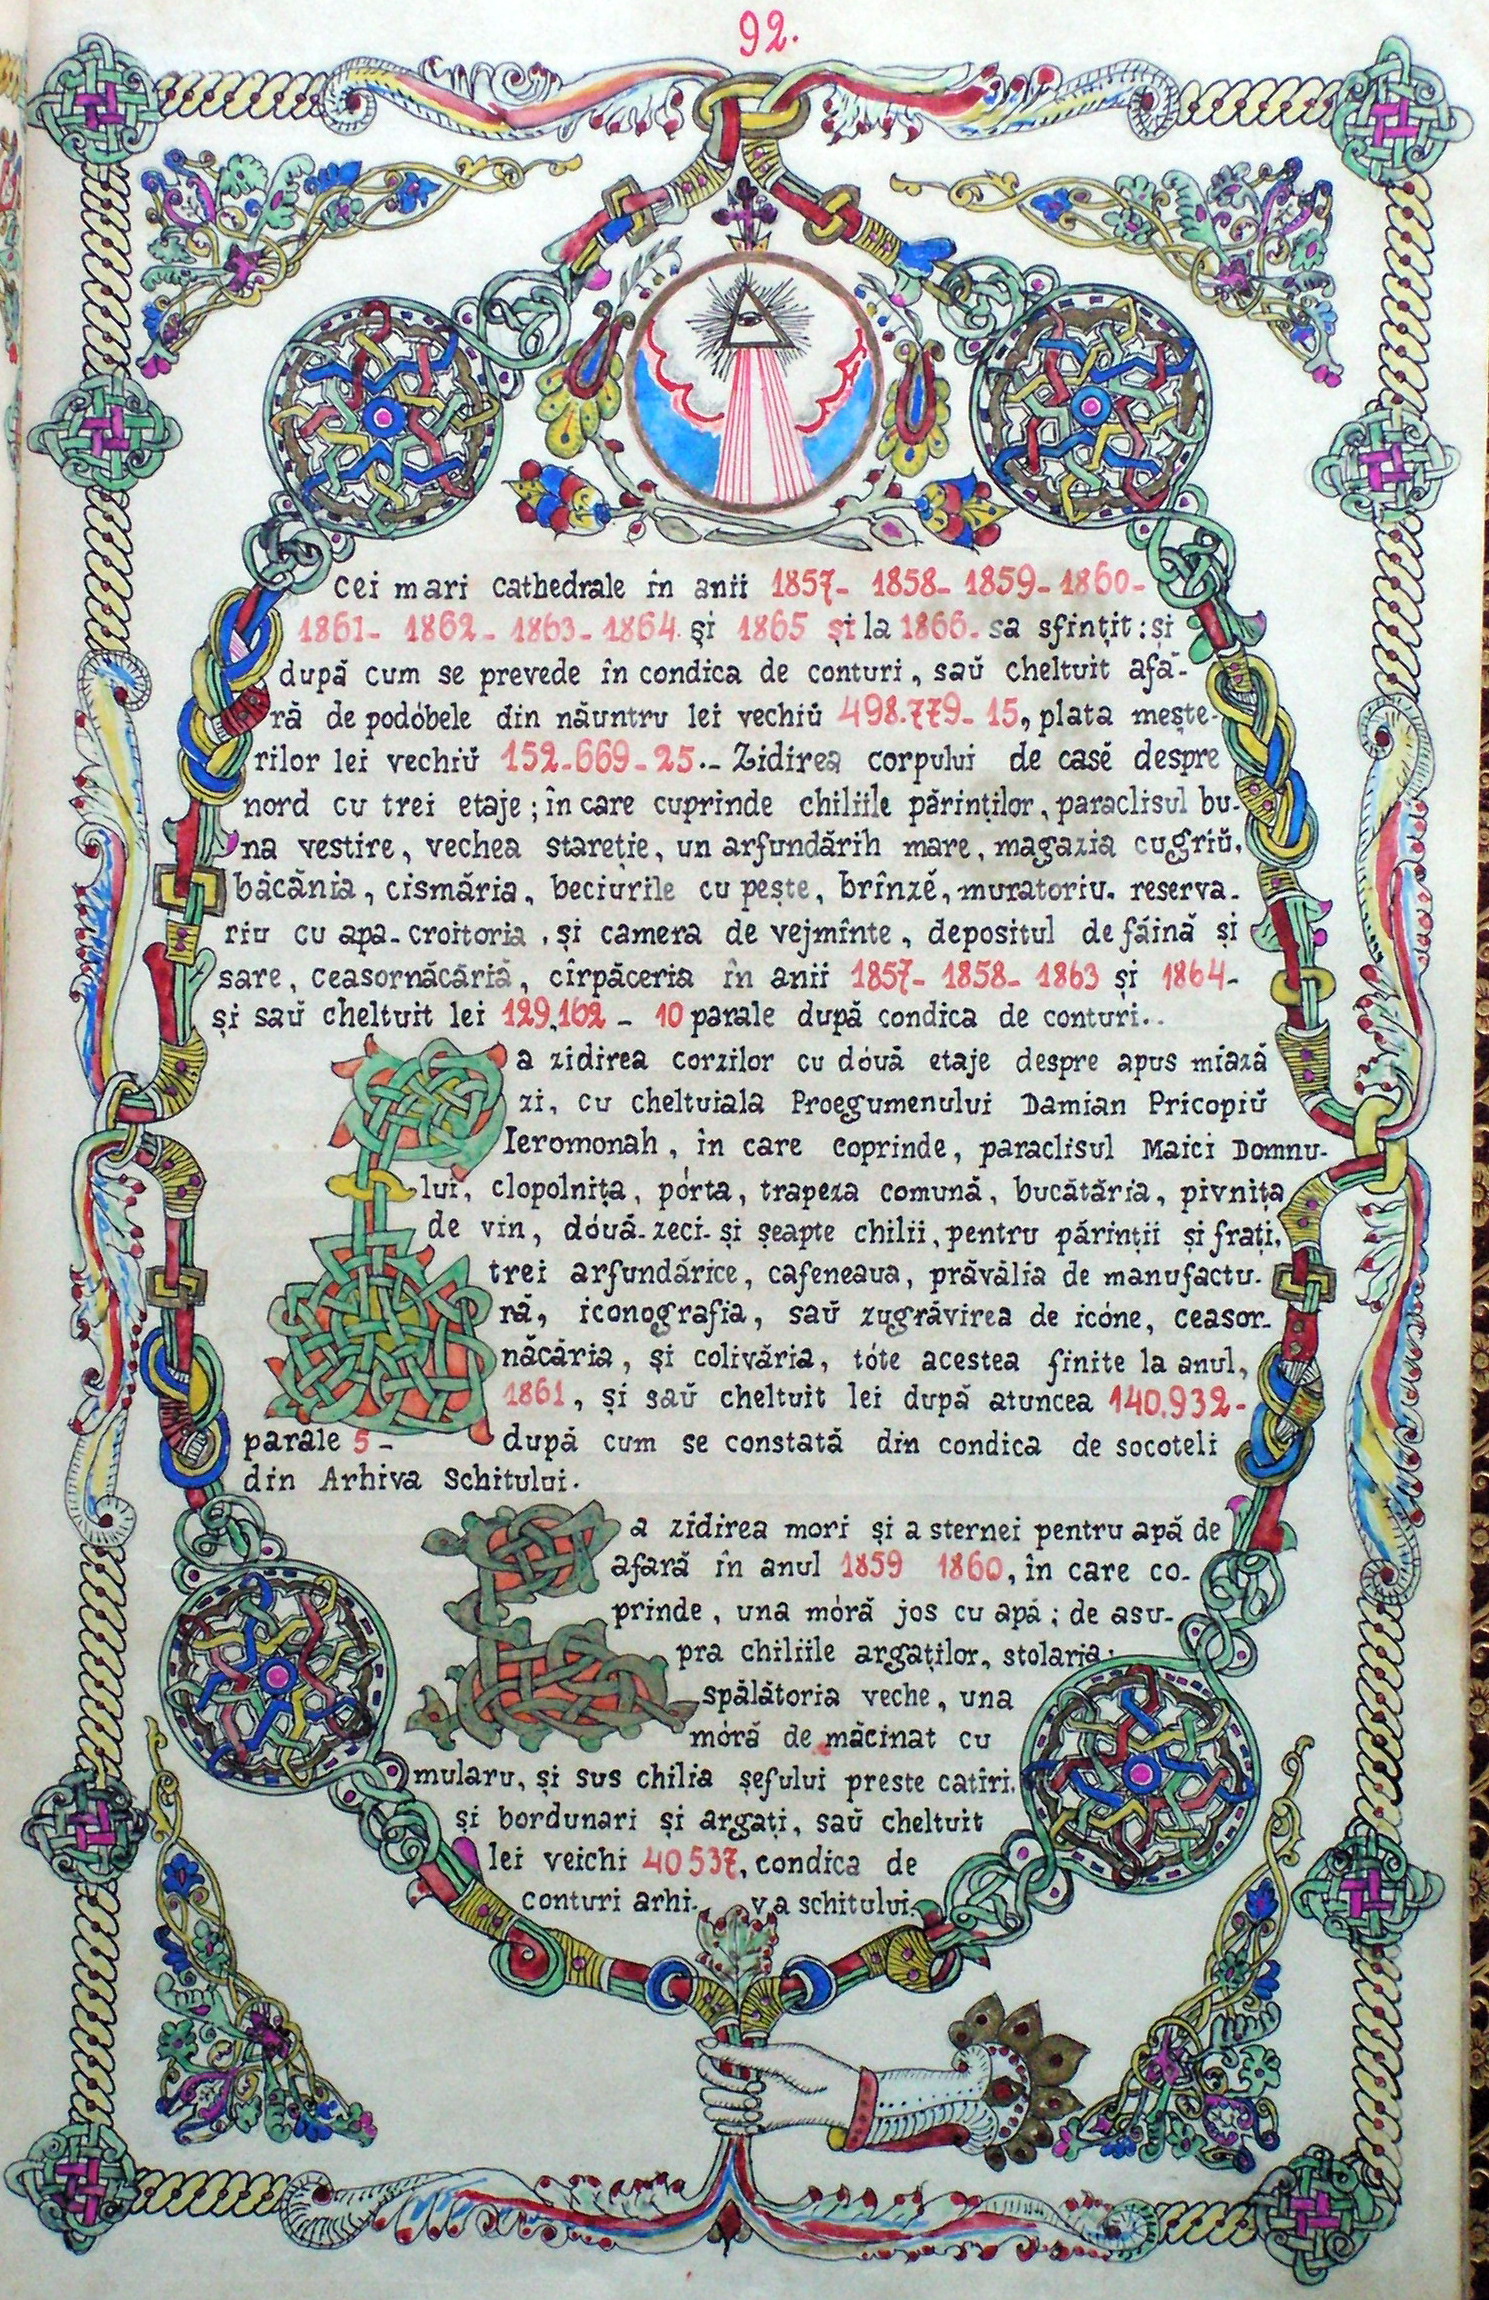 92.
cei mari cathedrale în anii 1857- 1858- 1859- 1860-
1861- 1862- 1863- 1864. și 1865 și la 1866. sa sfințit: și
după cum se prevede în condica de conturi, saŭ cheltuit afa-
ră de podóbele din năuntru lei vechiŭ 498.779- 15, plata mește-
rilor lei vechiŭ 152-669-25.- Zidirea corpului de casĕ despre
nord cu trei etaje; în care cuprinde chiliile părinților, paraclisul bu-
na vestire, vechea stareție, un arfundărih mare, magazia cu griŭ,
băcănia, cismăria, beciurile cu pește, brînzĕ, muratoriu. reserva-
riu cu apa- croitoria, și camera de vejmînte, depositul de făină și
sare, ceasornăcăriă, cîrpăceria în anii 1857- 1858- 1863 și 1864-
și saŭ cheltuit lei 129.162 - 10 parale după condica de conturi..
La zidirea corzilor cu dóuă etaje despre apus miază
zi, cu cheltuiala Proegumenului Damian Pricopiŭ
Ieromonah, în care coprinde, paraclisul Maici Domnu-
lui, clopolnița, pórta, trapeza comună, bucătăria, pivnița
de vin, dóuă-zeci-și șeapte chilii, pentru părinții și frați,
trei arfundărice, cafeneaua, prăvălia de manufactu-
ră, iconografia, saŭ zugrăvirea de icóne, ceasor-
năcăria, și colivăria, tóte acestea finite la anul,
1861, și saŭ cheltuit lei după atuncea 140.932-
parale 5 - după cum se constată din condica de socoteli
din Arhiva Schitului.
La zidirea mori și a sternei pentru apă de
afară în anul 1859 1860, în care co-
prinde, una móră jos cu apă; de asu-
pra chiliile argaților, stolaria;
spălătoria veche, una
móră de măcinat cu
mularu, și sus chilia șefului preste catîri,
și bordunari și argați, saŭ cheltuit
lei veichi 40537, condica de
conturi arhi- va schitului.